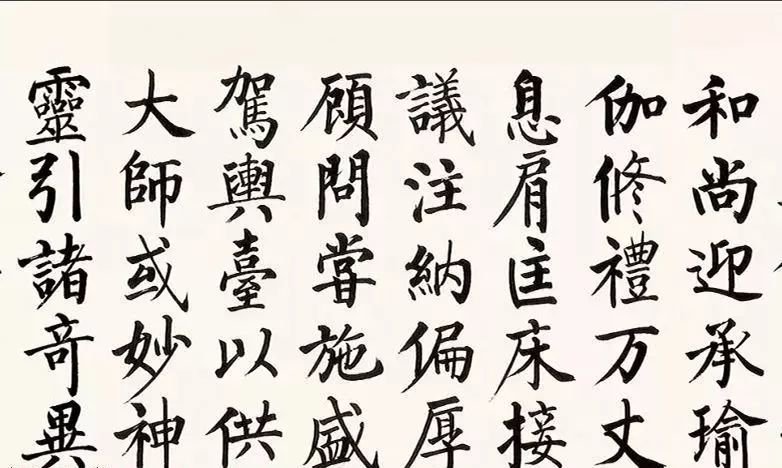 和尚迎承瑜
伽修禮万丈
息肩匡床接
議注納偏厚
顧問甞施盛
駕輿臺以供
大師或妙神
靈引諸奇異